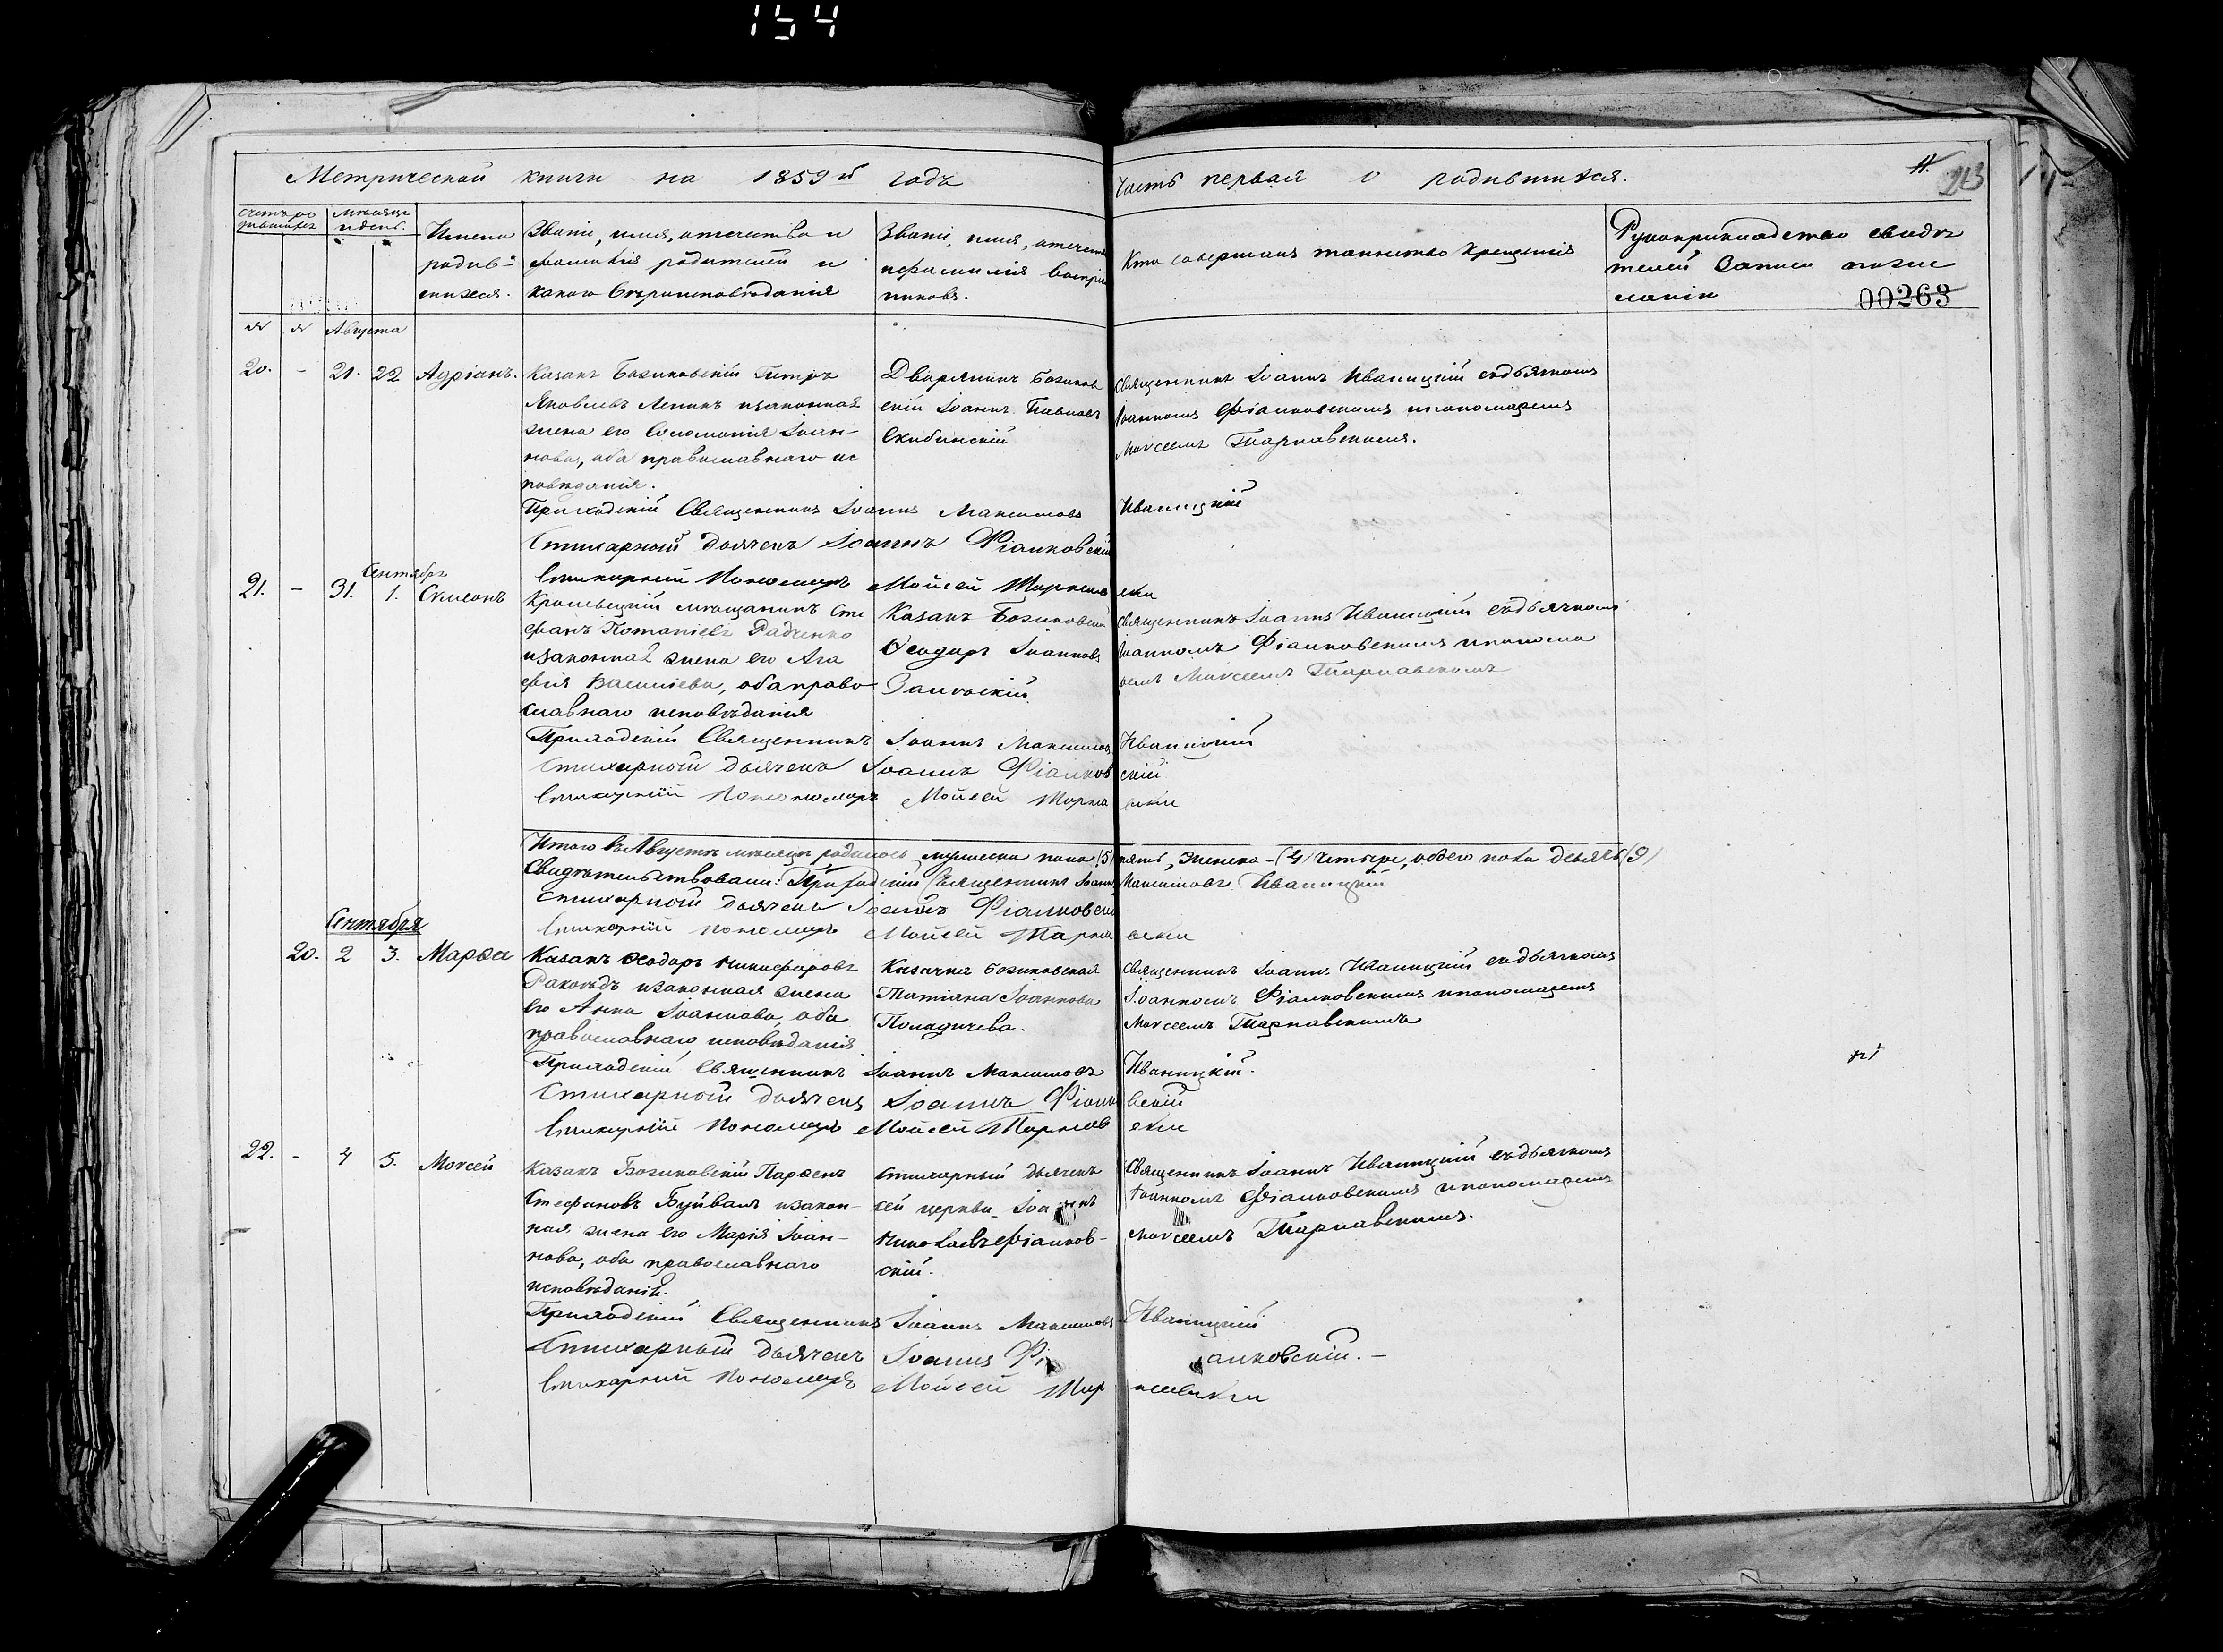 154
Метрической книги на 1859й годъ
Часть первая о родившихся.
11.
213
Счетъ ро
дившихся
Мѣсяцъ
и день.
Имена
родив-
шихся.
Званіе, имя, отечество и
фамилія родителей и
какого вѣроисповѣданія
Званіе, имя, отечест
и фамилія воспріе
никовъ.
Кто совершалъ таинство крещенія
Рукоприкладство свидѣ
телей записи по же
ланію
00263
Августа
20. - 21. 22 Адріанъ.
Казакъ Божиковскій Петръ
Яковлевъ Леникъ и законная
жена его Соломонія Іоан-
нова, оба православнаго ис
повѣданія.
Дворянинъ Божиков
скій Іоаннъ Павловъ
Скибинскій
Священникъ Іоаннъ Иваницкій съ дьячкомъ
Іоанномъ Фіалковскимъ и пономаремъ
Моѵсеемъ Тарнавскимъ.
Приходскій Священникъ Іоаннъ Максимовъ Иваницкій
Стихарный дьячекъ Іоаннъ Фіалковскій
Стихарный Пономарь Мойсей Тарнавски
Сентябрь
21. - 31. 1. Сѵмеонъ
Кролевецкій мѣщанинъ Сте
фанъ Радченко
и законная жена его Ага
фія Василіева, оба право
славнаго исповѣданія
Казакъ Божиковскій
Ѳеодоръ Іоанновъ
Священникъ Іоаннъ Иваницкій съ дьячкомъ
Іоанномъ Фіалковскимъ и понома
ремъ Моѵсеемъ Тарнавскимъ
Приходскій Священникъ Іоаннъ Максимовъ Иваницкій
Стихарный дьячекъ Іоаннъ Фіалковскій
Стихарный Пономарь Мойсей Тарнавски
Итого въ Августѣ мѣсяцѣ родилось мужеска пола (5) пять, женска - (4) четыре, обоего пола девять (9)
Свидѣтельствовали: Приходскій Священникъ Іоаннъ Максимовъ Иваницкій
Стихарный дьячекъ Іоаннъ Фіалковскій
Стихарный пономарь Мойсей Тарнавски
Сентября
20. 2 3. Марѳа
Казакъ Ѳеодоръ Никифоровъ
и законная жена
его Анна Іоаннова, оба
православнаго исповѣданія
Казачка Божиковская
Татіана Іоаннова
Священникъ Іоаннъ Иваницкій съ дьячкомъ
Іоанномъ Фіалковскимъ и пономаремъ
Моѵсеемъ Тарнавскимъ
Приходскій Священникъ Іоаннъ Максимовъ Иваницкій.
Стихарный дьячекъ Іоаннъ Фіалковскій
Стихарный Пономарь Мойсей Тарнавски
22. - 4 5. Моѵсей
Казакъ Божиковскій Парѳенъ
Стефановъ Буйвалъ и закон-
ная жена его Марія Іоан-
нова, оба православнаго
исповѣданія.
Стихарный дьячекъ
сей церкви Іоаннъ
Николаевъ Фіалков-
скій.
Священникъ Іоаннъ Иваницкій съ дьячкомъ
Іоанномъ Фіалковскимъ и пономаремъ
Моѵсеемъ Тарнавскимъ.
Приходскій Священникъ Іоаннъ Максимовъ Иваницкій
Стихарный дьячекъ Іоаннъ Фіалковскій. -
Стихарный Пономарь Мойсей Тарнавски